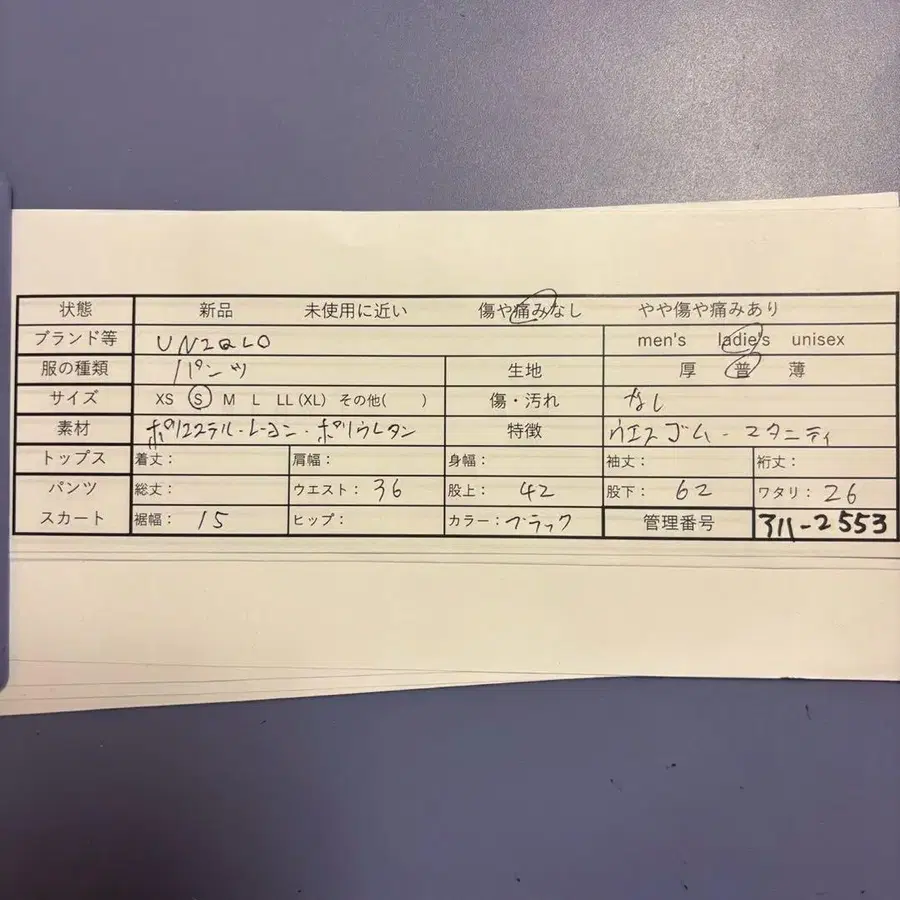 状態 新品 未使用に近い 傷や痛みなし やや傷や痛みあり
ブランド等 UNIQLO men's ladie's unisex
服の種類 パンツ 生地 厚 普 薄
サイズ XS S M L LL (XL) その他( ) 傷・汚れ なし
素材 ポリエステル・レーヨン・ポリウレタン 特徴 ウエストゴム・マタニティ
トップス 着丈: 肩幅: 身幅: 袖丈: 裄丈:
パンツ 総丈: ウエスト: 36 股上: 42 股下: 62 ワタリ: 26
スカート 裾幅: 15 ヒップ: カラー: ブラック 管理番号 311-2553